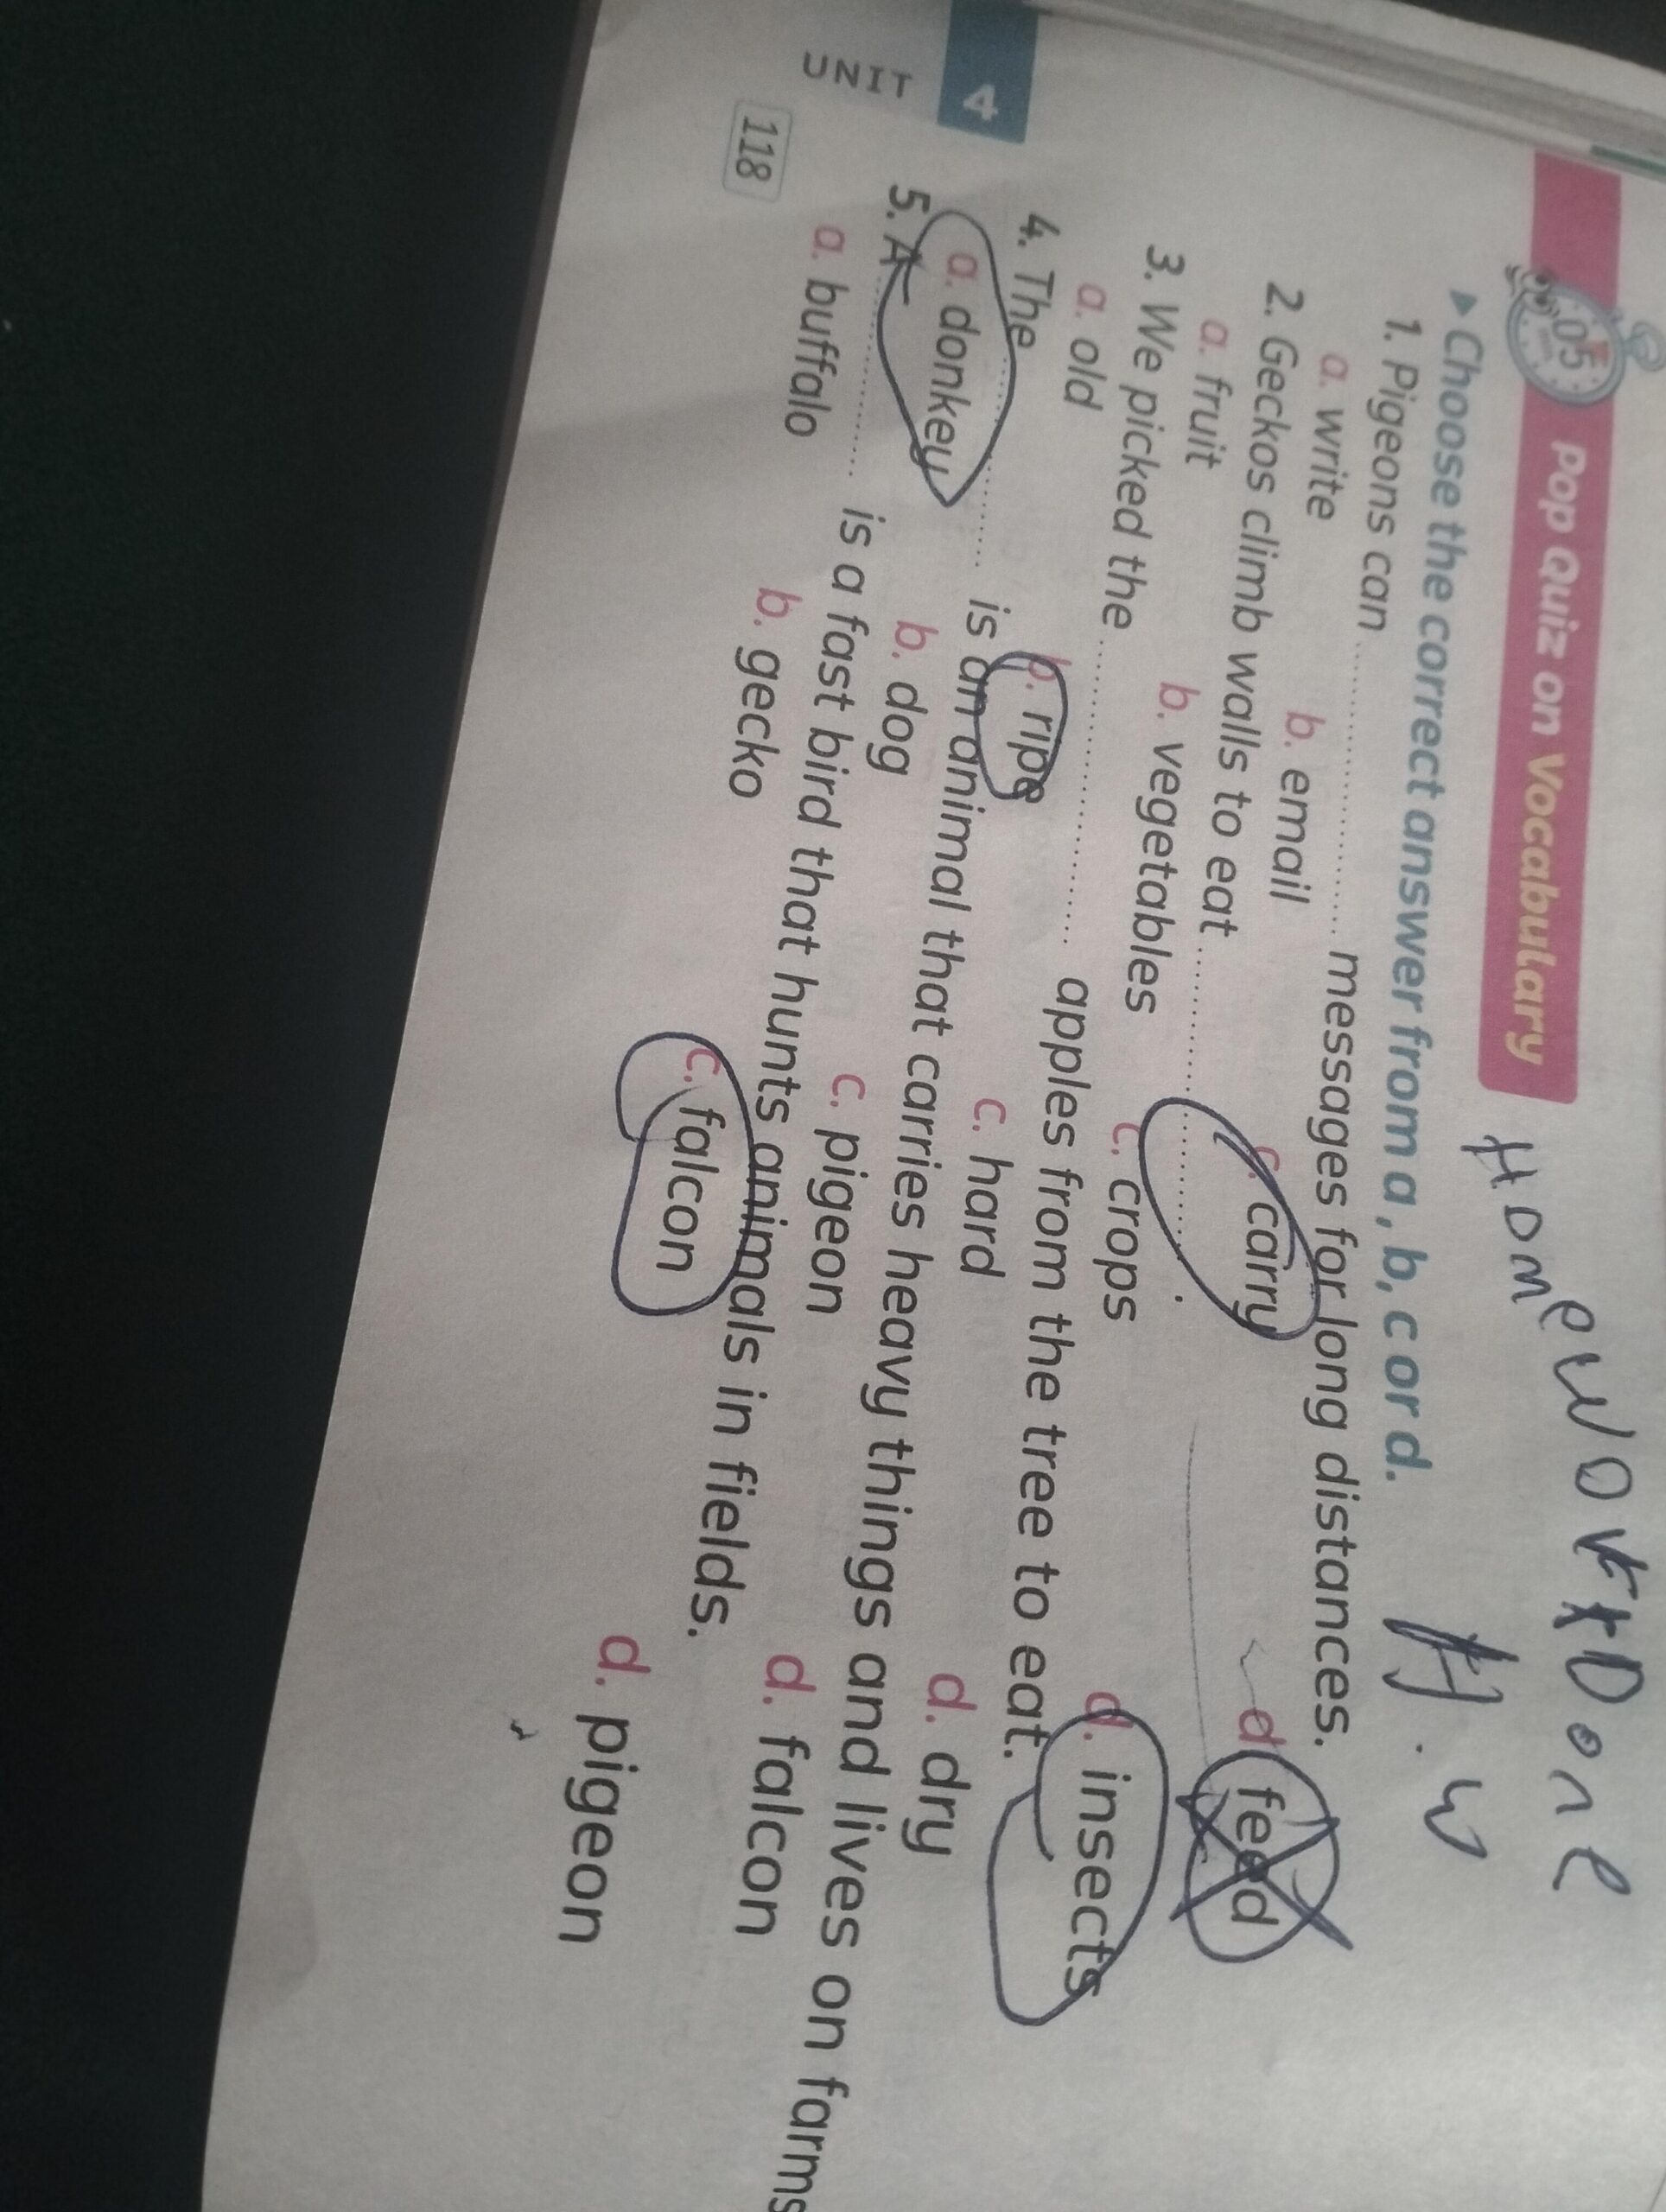 Homework Done
H.W
05 Pop Quiz on Vocabulary
▶ Choose the correct answer from a, b, c or d.
1. Pigeons can .................... messages for long distances.
a. write b. email c. carry d. feed
2. Geckos climb walls to eat .................... .
a. fruit b. vegetables c. crops d. insects
3. We picked the .................... apples from the tree to eat.
a. old b. ripe c. hard d. dry
4. The .................... is an animal that carries heavy things and lives on farms
a. donkey b. dog c. pigeon d. falcon
5. A .................... is a fast bird that hunts animals in fields.
a. buffalo b. gecko c. falcon d. pigeon
4
UNIT
118